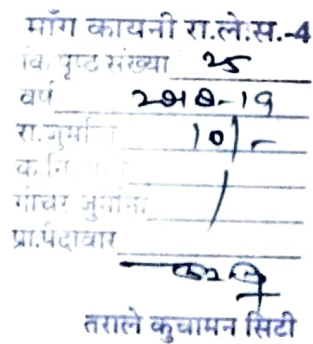 माँग कायनी रा.ले.स.-4
कि पृष्ठ संख्या 25
वर्ष 2018-19
रा.जुर्माना 10/-
क.नि.
गोचर जुर्माना /
प्रा.पैदावार
तराले कुचामन सिटी